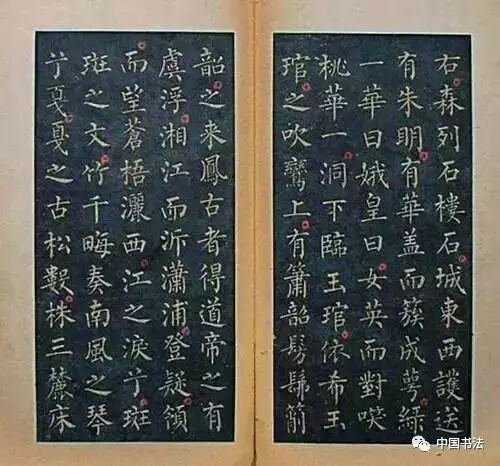 右森列石樓石城東西護送
有朱明有華盖而蔟成萼綠
一華曰娥皇曰女英而對咲
桃華一洞下臨玉琯依希玉
琯之吹鸞上有簫韶髣髴箾
韶之来鳳古者得道帝之有
虞浮湘江而泝瀟浦登疑領
而望蒼梧灑西江之淚亍斑
斑之文竹千畮奏南風之琴
亍戛戛之古松數株三麓床
中国书法